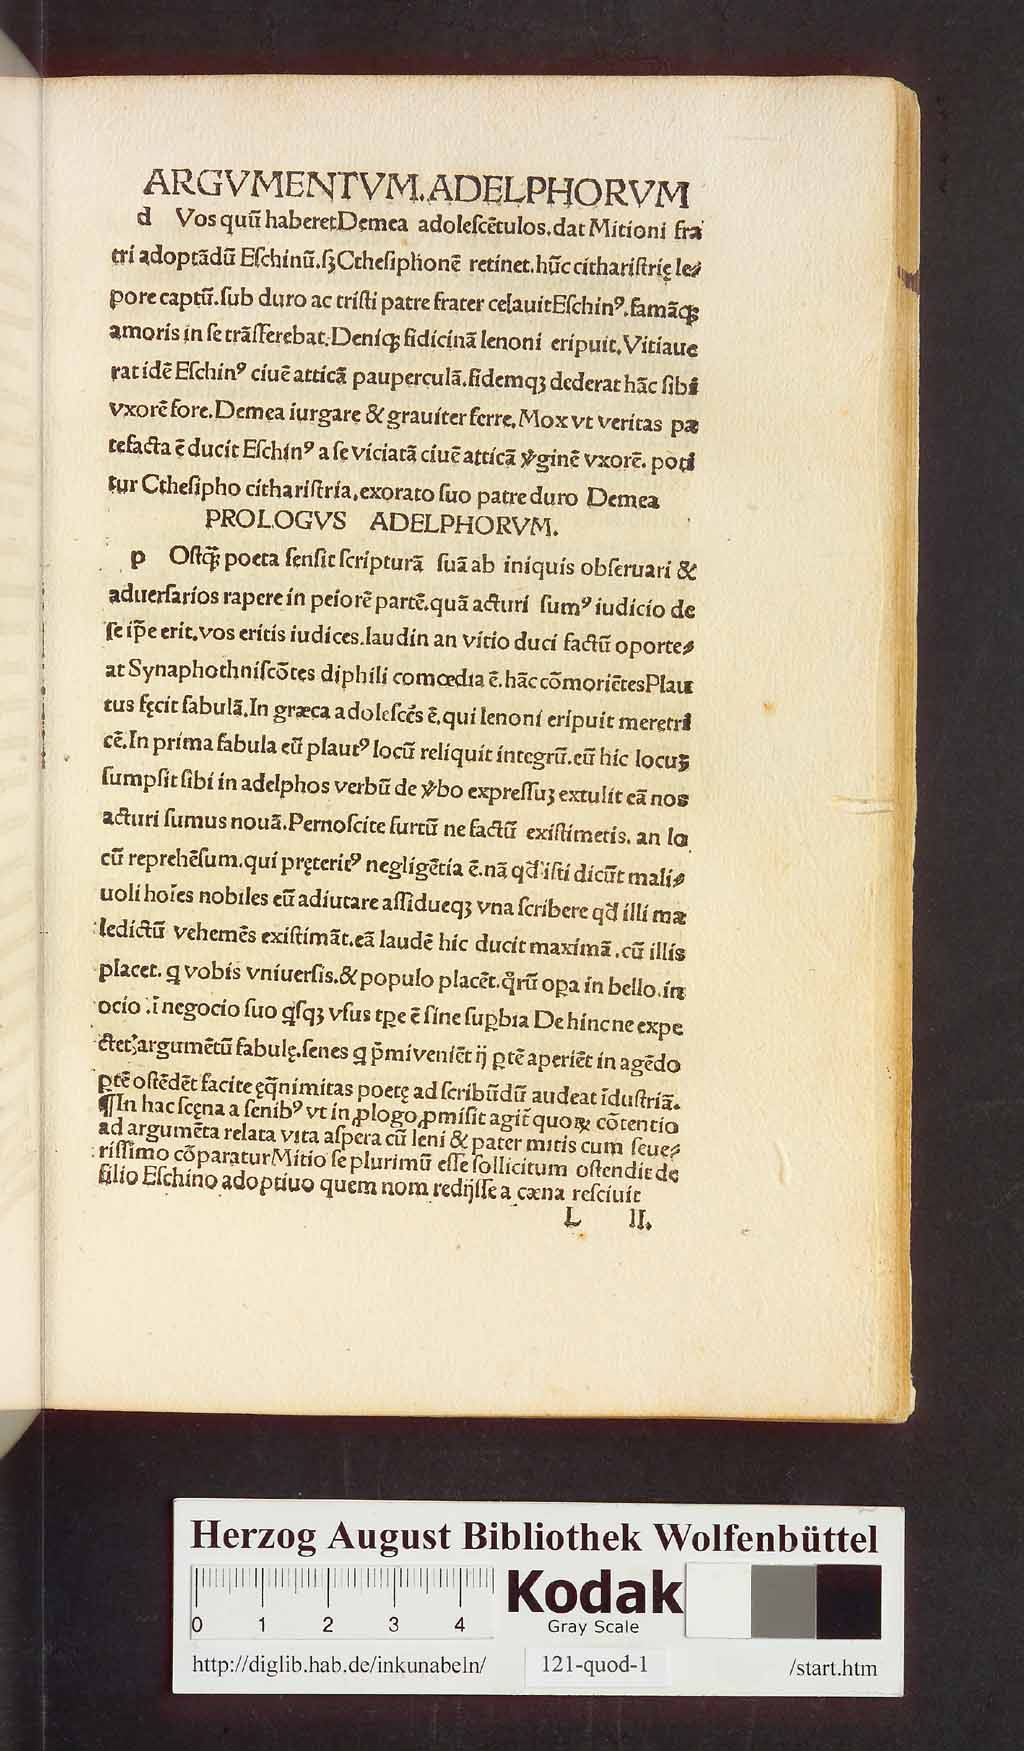 ARGVMENTVM.ADELPHORVM
d Vos quū haberet Demea adoleſcētulos.dat Mitioni fra
tri adoptādū Eſchinū.ſꝫ Ctheſiphonē retinet.hūc cithariſtrię le⸗
pore captū.ſub duro ac triſti patre frater celauit Eſchinꝰ.famāqꝫ
amoris in ſe trāſferebat.Deniqꝫ fidicinā lenoni eripuit.Vitiaue
rat idē Eſchinꝰ ciuē atticā pauperculā.fidemqꝫ dederat hāc ſibi
vxorē fore.Demea iurgare & grauiter ferre.Mox vt veritas pa
tefacta ē ducit Eſchinꝰ a ſe viciatā ciuē atticā v̓ginē vxorē. poti
tur Ctheſipho cithariſtria.exorato ſuo patre duro Demea
PROLOGVS ADELPHORVM.
p Oſtqꝫ poeta ſenſit ſcripturā ſuā ab iniquis obſeruari &
aduerſarios rapere in peiorē partē.quā acturi ſumꝰ iudicio de
ſe ip̄e erit.vos eritis iudices.laudin an vitio duci factū oporte⸗
at Synaphothniſcōtes diphili comœdia ē.hāc cōmoriētes Plau
tus fęcit fabulā.In græca adoleſcēs ē.qui lenoni eripuit meretri
cē.In prima fabula eū plautꝰ locū reliquit integrū.eū hic locuꝫ
ſumpſit ſibi in adelphos verbū de v̓bo expreſſuꝫ extulit eā nos
acturi ſumus nouā.Pernoſcite furtū ne factū exiſtimetis. an lo
cū reprehēſum.qui pręteritꝰ negligētia ē.nā qđ iſti dicūt mali⸗
uoli hoīes nobiles eū adiutare aſſidueqꝫ vna ſcribere qđ illi ma
ledictū vehemēs exiſtimāt.eā laudē hic ducit maximā.cū illis
placet. q vobis vniuerſis.& populo placēt.qͦrū oꝑa in bello.in
ocio.ī negocio ſuo qſqꝫ vſus tꝑe ē ſine ſuꝑbia De hinc ne expe
ctetꝭ argumētū fabulę.ſenes q p̄mi veniēt ij ꝑtē aperiēt in agēdo
ꝑtē oſtēdēt facite ęq̄nimitas poetę ad ſcribūdū audeat īduſtriā.
¶In hac ſcęna a ſenibꝰ vt in ꝓlogo ꝓmiſit agit̄ quoꝝ cōtentio
ad argumēta relata vita aſpera cū leni & pater mitis cum ſeue⸗
riſſimo cōparatur Mitio ſe plurimū eſſe ſollicitum oſtendit de
filio Eſchino adoptiuo quem nom redijſſe a cæna reſciuit
L II.
Herzog August Bibliothek Wolfenbüttel
0 1 2 3 4
Kodak
Gray Scale
http://diglib.hab.de/inkunabeln/ 121-quod-1 /start.htm